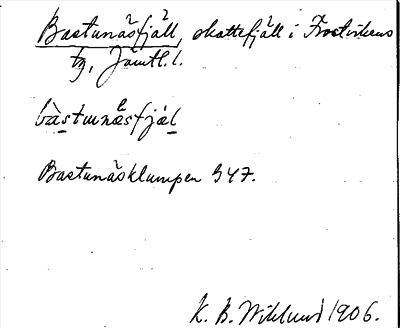 Bastunäsfjäll, skattefjäll i Frostvikens
tg, Jämtl. l.
bàstunǽsfjæ̀l
Bastunäsklumpen 347.
K. B. Wiklund 1906.